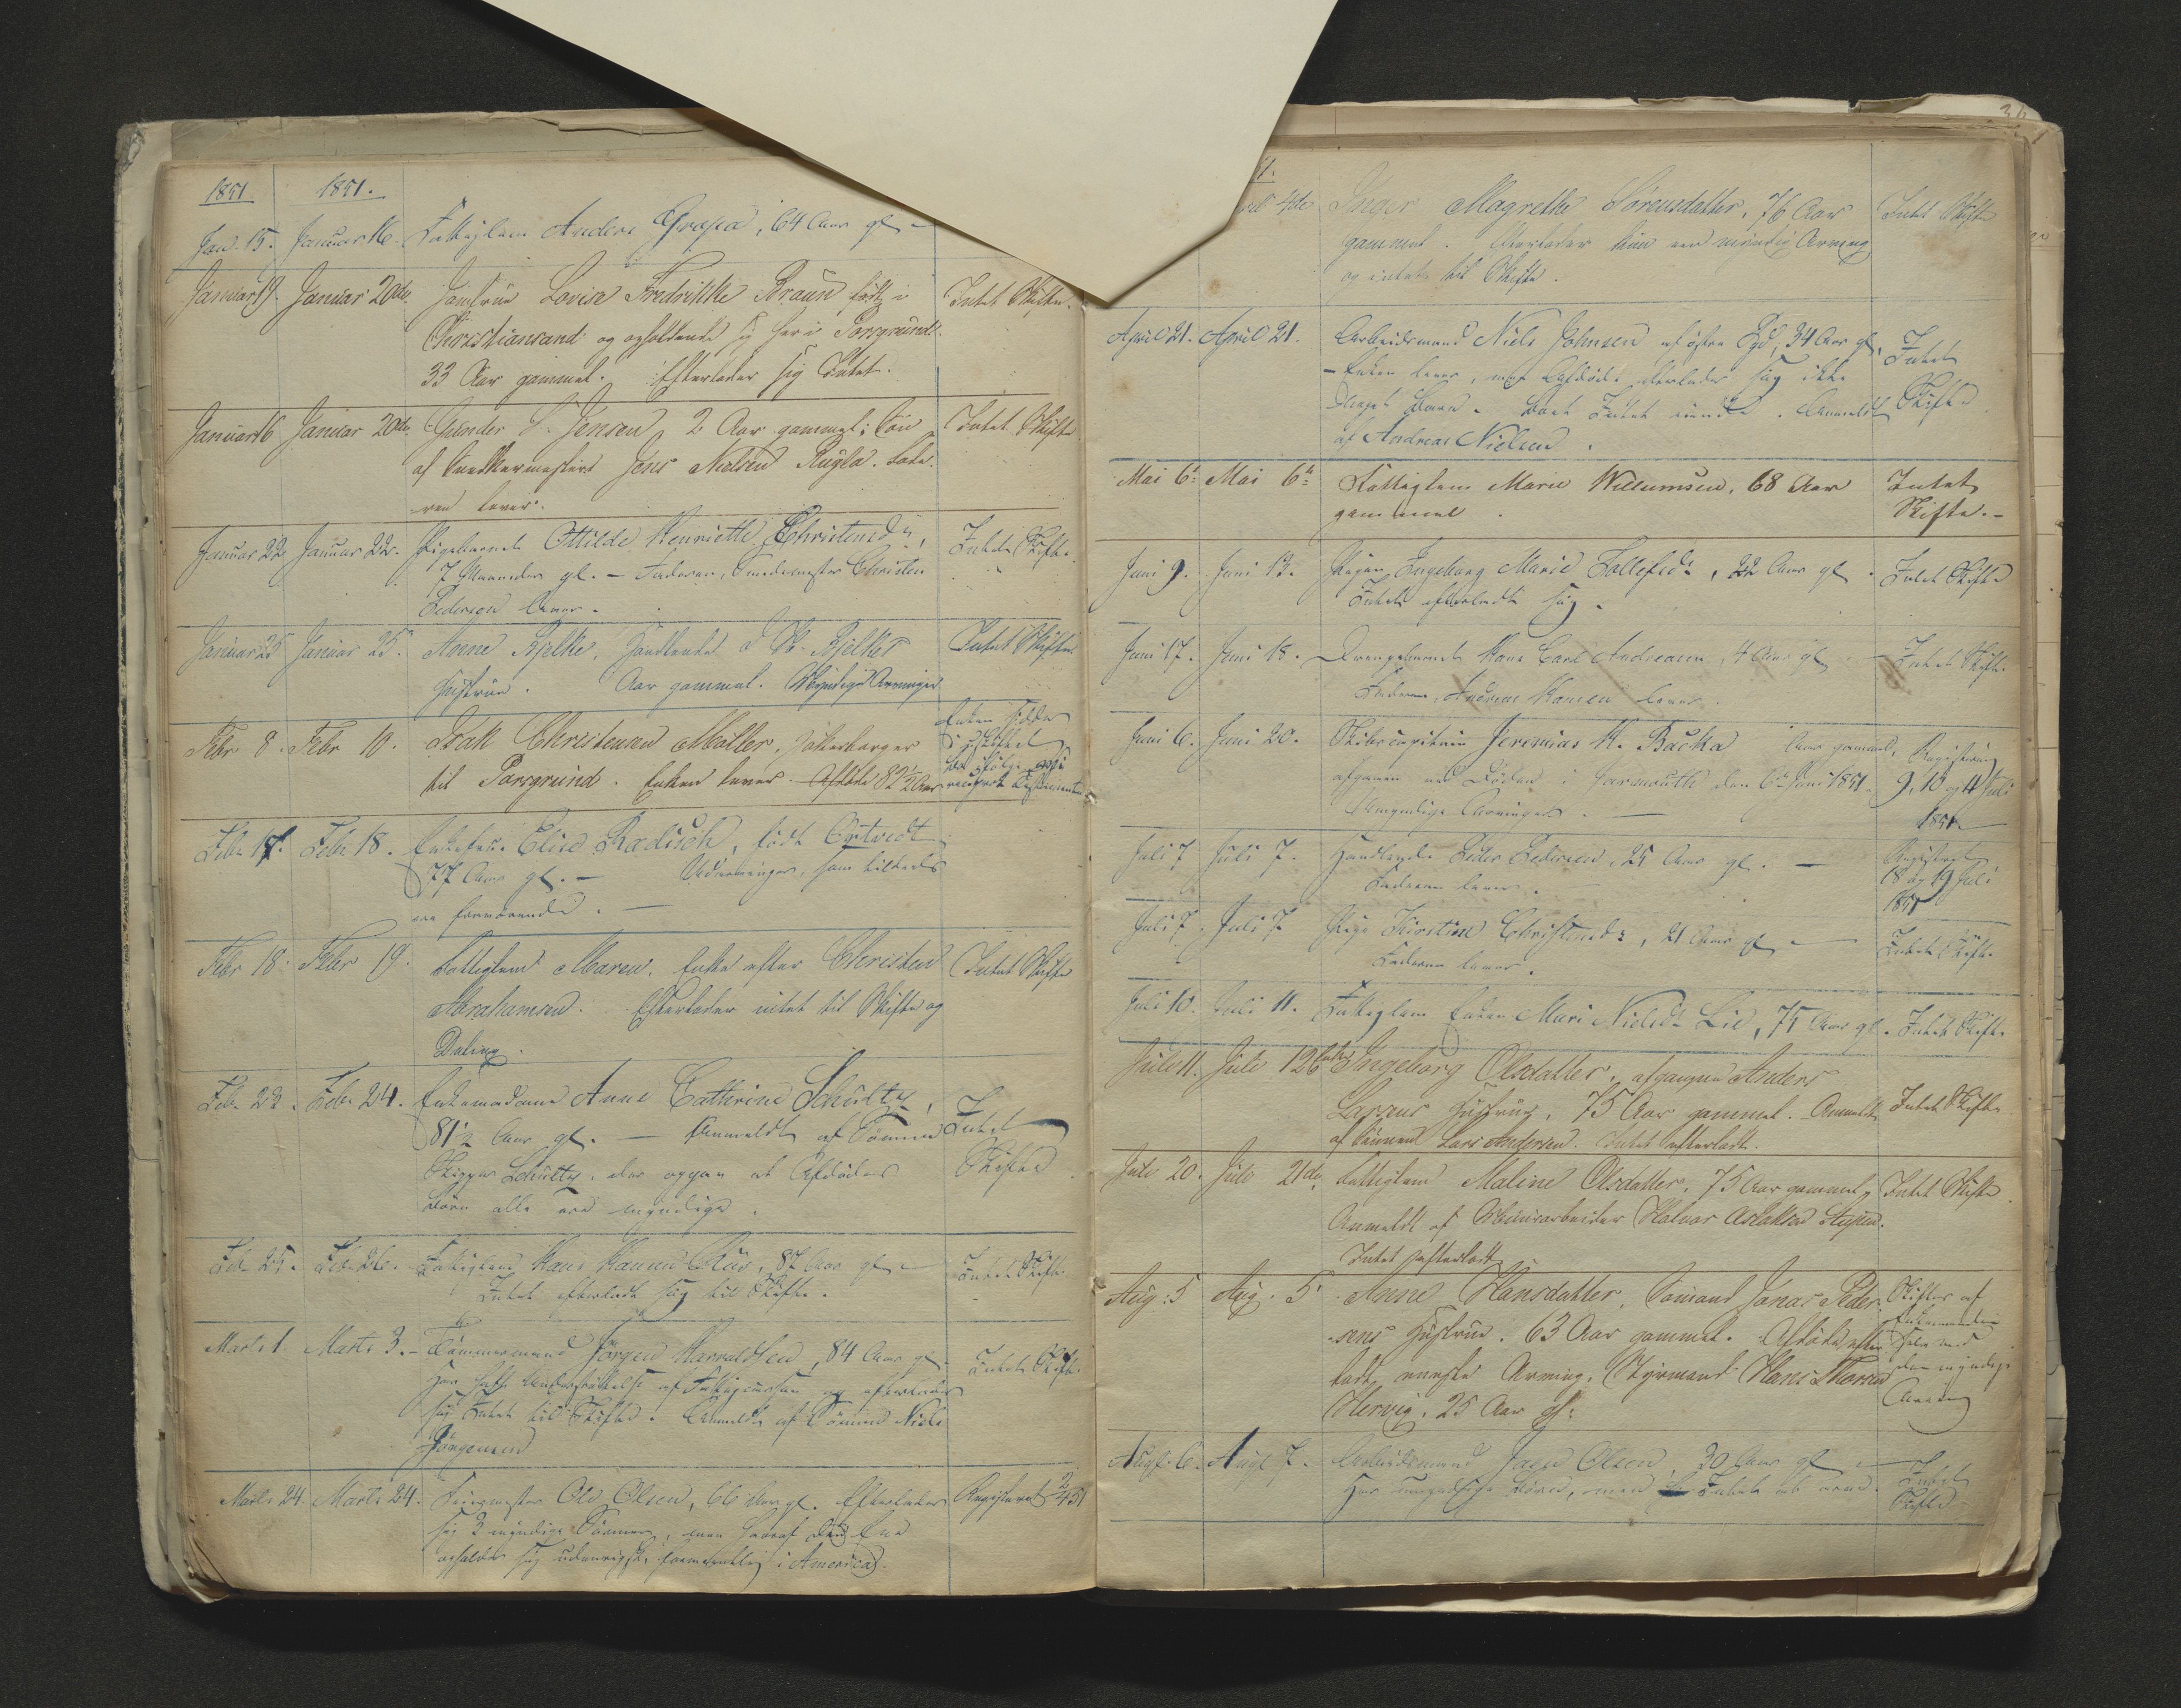 1851. 1851.
Jan. 15. Januar 16. Fattiglem Anders Grapa, 64 Aar gl –
Januar 19. Januar 20de. Jomfrue Lovise Fredrikke Braun født i Intet Skifte.
Christiansand og opholdende sig her i Porsgrund.
33 Aar gammel. Efterlader sig Intet.
Januar 16 Januar 20de. Jensen, 2 Aar gammel. Søn Intet Skifte
af Snedkermester Jens Nielsen Rugla. Fade-
ren lever.
Januar 22 Januar 22. Pigebarnet Ottilde Henriette Christensdr, Intet Skifte.
7 Maaneder gl. – Faderen, Smedemester Christen
Pedersen lever.
Januar 25 Januar 25. Anne Bjelke, Handlende Bjelkes Intet Skifte
Hustrue. Aar gammel. Myndige Arvinger
Febr 8. Febr 10. Isak Christensen Møller, Enken sidder
i uskiftet
til Porsgrund. Enken lever. Afdøde 82½ Aar
Febr. 17. Febr. 18. Enkefru Elise Radisch, født Cortvedt
77 Aar gl. – Udarvinger, som tildeels
ere fraværende. –
Febr 18. Febr 19. Fattiglem Maren, Enke efter Christen Intet Skifte
Abrahamsen. Efterlader intet til Skifte og
Deling.
Feb. 22. Febr. 24. Enkemadame Anne Cathrine Schultz, Intet
81½ Aar gl. – Anmeldt af Sønnen
Skipper Schultz, der opgav at Afdødes Skifte
Børn alle ere myndige.
Feb. 25. Feb. 26. Fattiglem Hans Hansen 87 Aar gl – Intet Skifte
Intet efterladt sig til Skifte.
Marts 1. Marts 3. – Tømmermand Jørgen Harraldsen, 84 Aar gl. Intet Skifte.
Har havt Understøttelse af Fattigcassen og efterlader
sig Intet til Skifte. Anmeldt af Sønnen Niels
Jørgensen
Marts 24. Marts 24. Ole Olsen, 66 Aar gl. Efterlader Registreret 2/4 51
sig 3 myndige Sønner, men hvoraf den Ene
opholder sig udenrigs, formentlig i America.
Inger Magrethe Sørensdatter, 76 Aar Intet Skifte
gammel. Efterlader kun een myndig Arving
og intet til Skifte.
April 21. April 21. Arbeidsmand Niels Johnsen af østre 34 Aar gl. Intet
– Enken lever, men Afdøde efterlader sig ikke
noget Barn. Anmeldt Skifte
af Andreas Nielsen.
Mai 6. Mai 6te Fattiglem Marie Willumsen, 68 Aar Intet
gammel. Skifte. –
Juni 9. Juni 13. Pigen Ingeborg Marie Tollefsdr, 22 Aar gl. Intet Skifte
Intet efterladt sig.
Juni 17. Juni 18. Drengebarnet Hans Carl Andreasen, 4 Aar gl – Intet Skifte.
Faderen, Andreas Hansen lever.
Juni 6. Juni 20. Skibscapitain Jeremias K. Backa Aar gammel, Registrering
afgaaen ved Døden i Yarmouth den 6te Juni 1851. 9, 10 og 11 Juli
Umyndige Arvinger. – 1851.
Juli 7 Juli 7. Handlende Peder Pedersen, 25 Aar gl. – Registreret
Faderen lever. 18 og 19 Juli
1851
Juli 7. Juli 7. Pige Kirstine Christensdr, 21 Aar gl – Intet Skifte.
Faderen lever.
Juli 10. Juli 11. Fattiglem Enken Mari Nielsdr Lie, 75 Aar gl. Intet Skifte.
Juli 11. Juli 12 Enken Ingeborg Olsdatter, afgangne Anders
Larsens Hustrue, 75 Aar gammel. Anmeldt Intet Skifte
af Sønnen Lars Andersen. Intet efterladt.
Juli 20. Juli 21de. Fattiglem Maline Olsdatter, 75 Aar gammel, Intet Skifte
Anmeldt af Halvor Aslaksen
Intet efterladt
Aug: 5 Aug. 5. Anne Hansdatter, Sømand Jonas Peder- Skiftes af
sens Hustrue. 63 Aar gammel. Afdøde efter- Enkemanden selv med
ladt eneste Arving, Styrmand Hans Thorsen den myndige
Hervig, 25 Aar gl: Arving
Augst. 6. Augst 7. Arbeidsmand Jacob Olsen, 30 Aar gl – Intet
Har umyndige Børn, men Intet at arve. Skifte